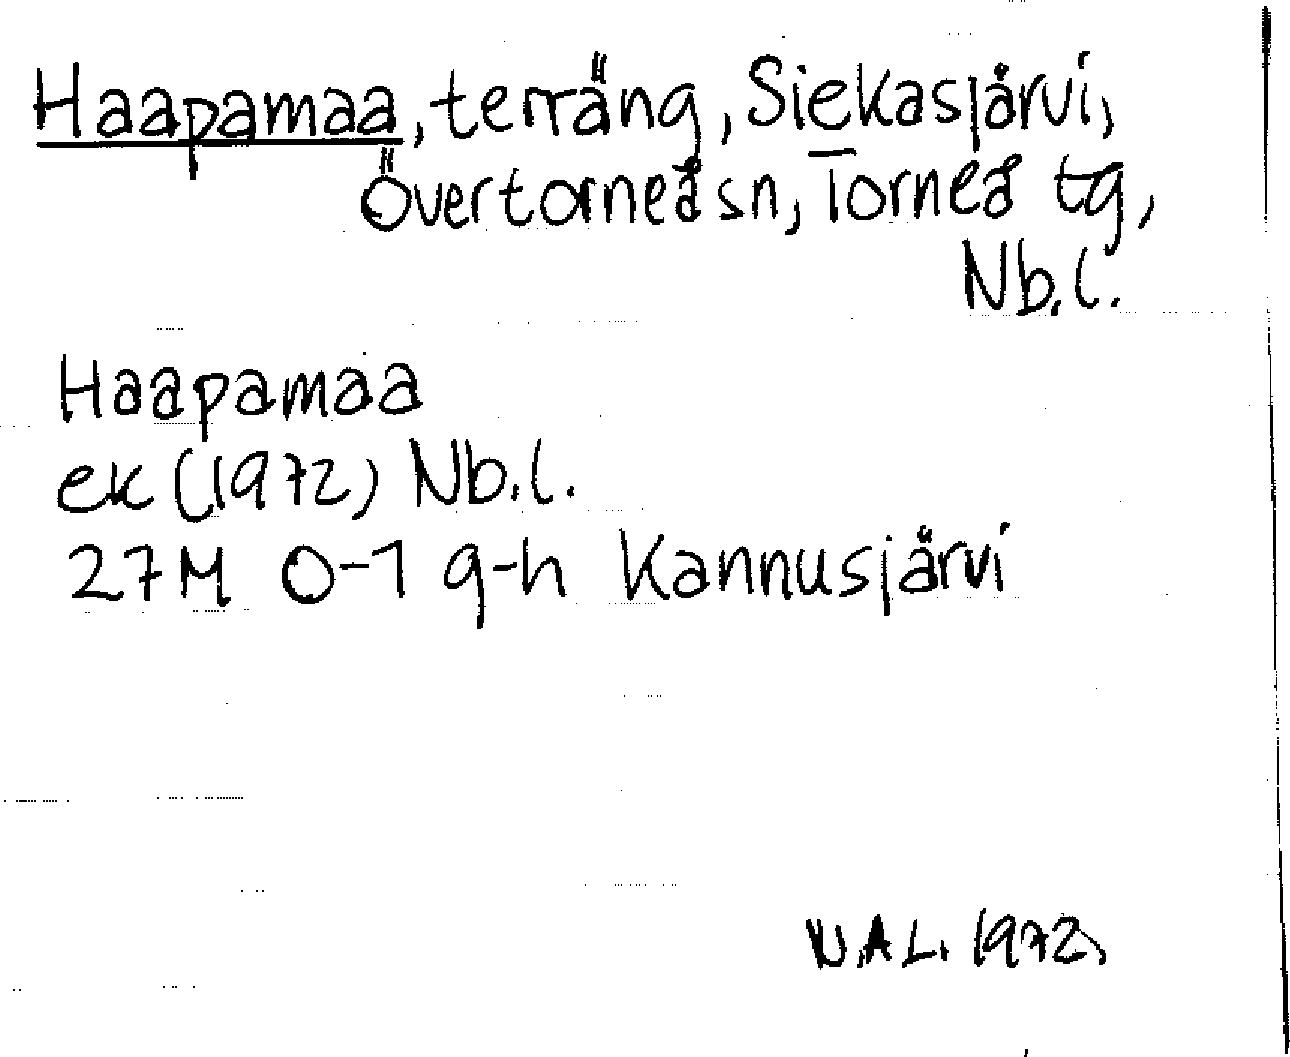 Haapamaa, terräng, Siekasjärvi,
Övertorneå sn, Torneå tg,
Nb.l.
Haapamaa
ek (1972) Nb.l.
27M 0-1 g-h Kannusjärvi
N.A.L. 1972